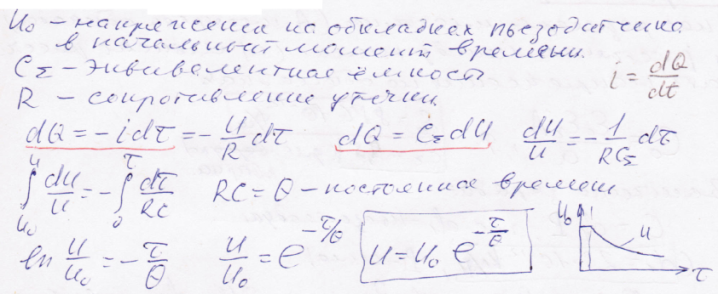 U₀ – напряжение на обкладках пьезодатчика
в начальный момент времени.
C_Σ – Эквивалентная ёмкость
i = dQ/dt
R – сопротивление утечки.
dQ = -idτ = -U/R dτ   dQ = C_Σ dU   dU/U = -1/(RC_Σ) dτ
∫_{U₀}^{U} dU/U = -∫_{0}^{τ} dτ/RC   RC = θ – постоянная времени
ln U/U₀ = -τ/θ   U/U₀ = e^{-τ/θ}   U = U₀ e^{-τ/θ}   U₀   U   τ